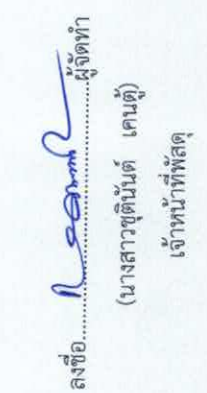 ลงชื่อ........................................ผู้จัดทำ
(นางสาวชุตินันต์ เคนตู้)
เจ้าหน้าที่พัสดุ